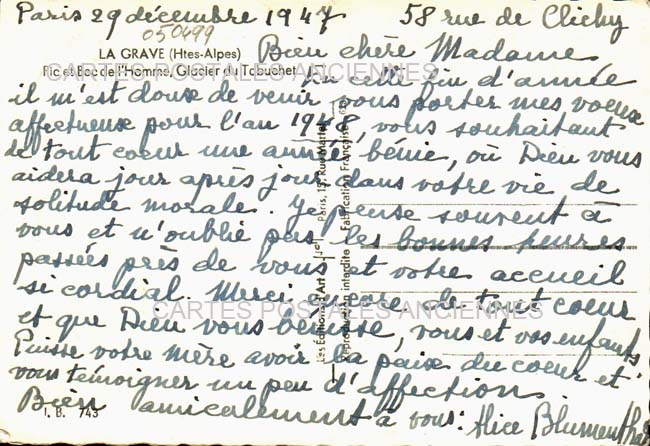 Paris 29 décembre 1947 58 rue de Clichy
050499
LA GRAVE (Htes-Alpes)
Bien chère Madame
Pic et Bec de l'Homme, Glacier du Tabuchet
CARTES POSTALES ANCIENNES
En cette fin d'année
il m'est doux de venir vous porter mes voeux
affectueux pour l'an 1948, vous souhaitant
de tout coeur une année bénie, où Dieu vous
aidera jour après jour dans votre vie de
solitude morale. Je pense souvent à
vous et n'oublie pas les bonnes heures
passées près de vous et votre accueil
si cordial. Merci encore de tout coeur
CARTES POSTALES ANCIENNES
et que Dieu vous bénisse, vous et vos enfants
Puisse votre mère avoir la paix du coeur et
vous témoigner un peu d'affection.
Bien amicalement à vous: Alice Blumenthal
I. B. 743
Les Editions d'Art Paris, 15, Rue Martel
Reproduction interdite Fabrication Française